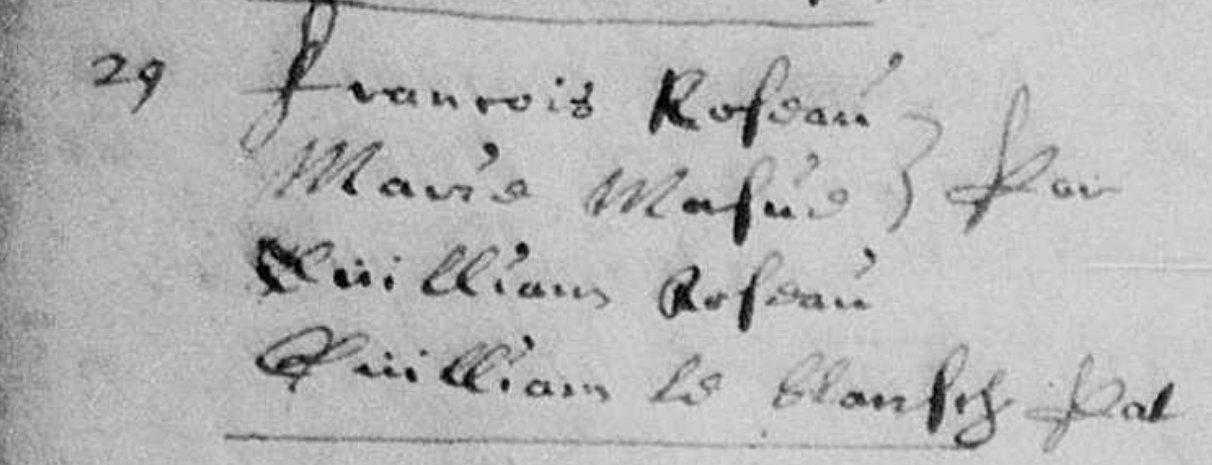 29 francois Roseau
Marie Masue } Par
Quilliam Roseau
Quilliam le blansch Pat